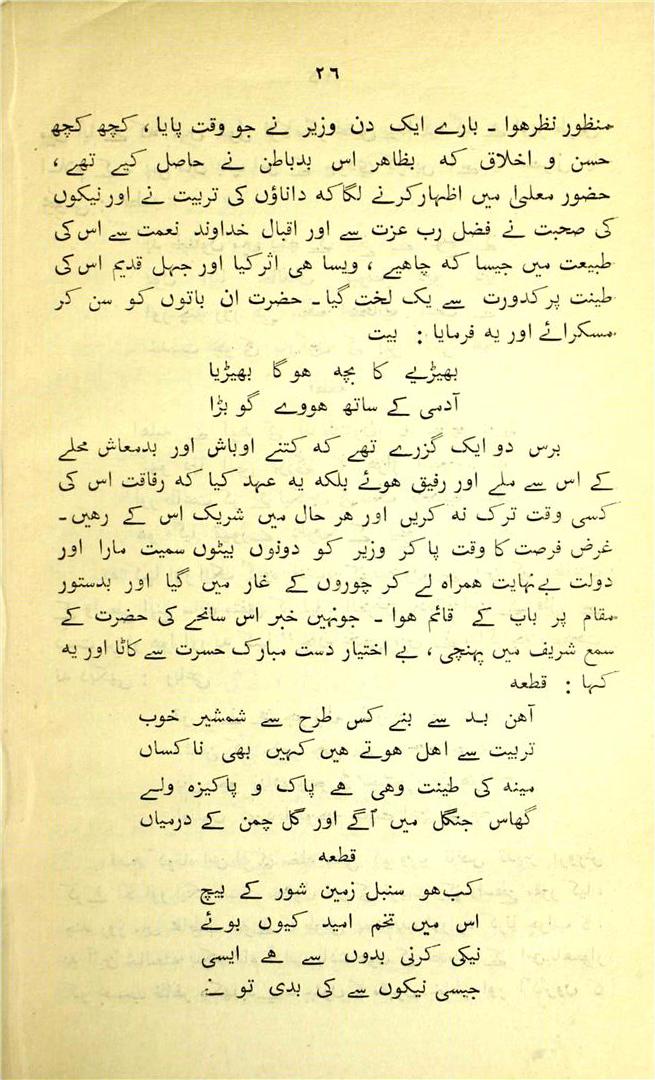 ۲٦
منظور نظر ھوا ۔ بارے ایک دن وزیر نے جو وقت پایا ، کچھ کچھ
حسن و اخلاق کہ بظاھر اس بدباطن نے حاصل کیے تھے ،
حضور معلیٰ میں اظہار کرنے لگا کہ داناؤں کی تربیت نے اور نیکوں
کی صحبت نے فضل رب عزت سے اور اقبال خداوند نعمت سے اس کی
طبیعت میں جیسا کہ چاھیے ، ویسا ھی اثر کیا اور جہل قدیم اس کی
طینت پر کدورت سے یک لخت گیا ۔ حضرت ان باتوں کو سن کر
مسکرائے اور یہ فرمایا : بیت
بھیڑیے کا بچہ ھو گا بھیڑیا
آدمی کے ساتھ ھووے گو بڑا
برس دو ایک گزرے تھے کہ کتنے اوباش اور بدمعاش محلے
کے اس سے ملے اور رفیق ھوئے بلکہ یہ عہد کیا کہ رفاقت اس کی
کسی وقت ترک نہ کریں اور ھر حال میں شریک اس کے رھیں ۔
غرض فرصت کا وقت پا کر وزیر کو دونوں بیٹوں سمیت مارا اور
دولت بے نہایت ھمراہ لے کر چوروں کے غار میں گیا اور بدستور
مقام پر باپ کے قائم ھوا ۔ جونہیں خبر اس سانحے کی حضرت کے
سمع شریف میں پہنچی ، بے اختیار دست مبارک حسرت سے کاٹا اور یہ
کہا : قطعہ
آھن بد سے بنے کس طرح سے شمشیر خوب
تربیت سے اھل ھوتے ھیں کہیں بھی ناکساں
مینہ کی طینت وھی ھے پاک و پاکیزہ ولے
گھاس جنگل میں اُگے اور گل چمن کے درمیاں
قطعہ
کب ھو سنبل زمین شور کے بیچ
اس میں تخم امید کیوں بوئے
نیکی کرنی بدوں سے ھے ایسی
جیسی نیکوں سے کی بدی تو نے